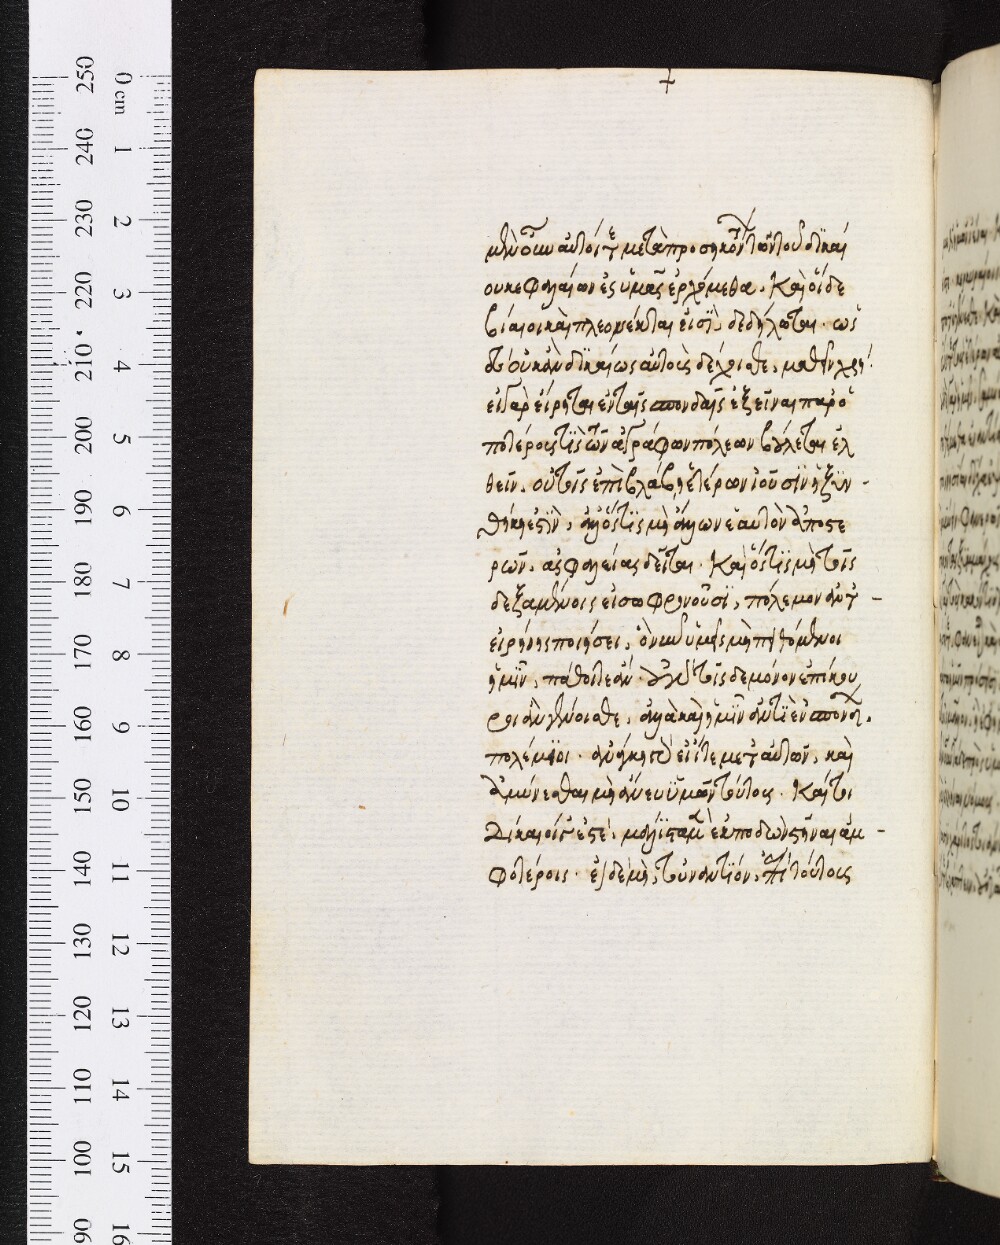 μὲν οὖν αὐτοί τε μετὰ προσηκόντων τῶν τοῦ δικαί
ου κεφαλαίων ἐς ὑμᾶς ἐρχόμεθα. Καὶ οἵδε
βίαιοι καὶ πλεονέκται εἰσὶ, δεδήλωται· ὡς
δὲ οὐκ ἂν δικαίως αὐτοὺς δέχοισθε, μαθεῖν χρή·
εἰ γὰρ εἴρηται ἐν ταῖς σπονδαῖς ἐξεῖναι παρ' ὁ
ποτέρους τὶς τῶν ἀγράφων πόλεων βούλεται ἐλ
θεῖν. οὐ τοῖς ἐπὶ βλάβῃ ἑτέρων ἰοῦσιν ἡ ξυν-
θήκη ἐστὶν, ἀλλ' ὅστις μὴ ἄλλων ἑαυτὸν ἀποστε
ρῶν, ἀσφαλείας δεῖται. Καὶ ὅστις μὴ τοῖς
δεξαμένοις εἰ σωφρονοῦσι, πόλεμον ἀντ'-
εἰρήνης ποιήσει. ὃ νῦν ὑμεῖς μὴ πειθόμενοι
ἡμῖν, πάθοιτε ἄν. οὐ γὰρ τοῖσδε μόνον ἐπίκου
ροι ἂν γένοισθε, ἀλλὰ καὶ ἡμῖν ἀντὶ ἐνσπόνδων.
πολέμιοι· ἀνάγκη γὰρ εἰ ἴτε μετ' αὐτῶν, καὶ
ἀμύνεσθαι μὴ ἄνευ ὑμῶν τούτους. Καίτοι
Δίκαιοί γ' ἐστέ. μάλιστα μὲν ἐκποδὼν στῆναι ἀμ-
φοτέροις· εἰ δὲ μὴ, τοὐναντίον, ἐπὶ τούτους